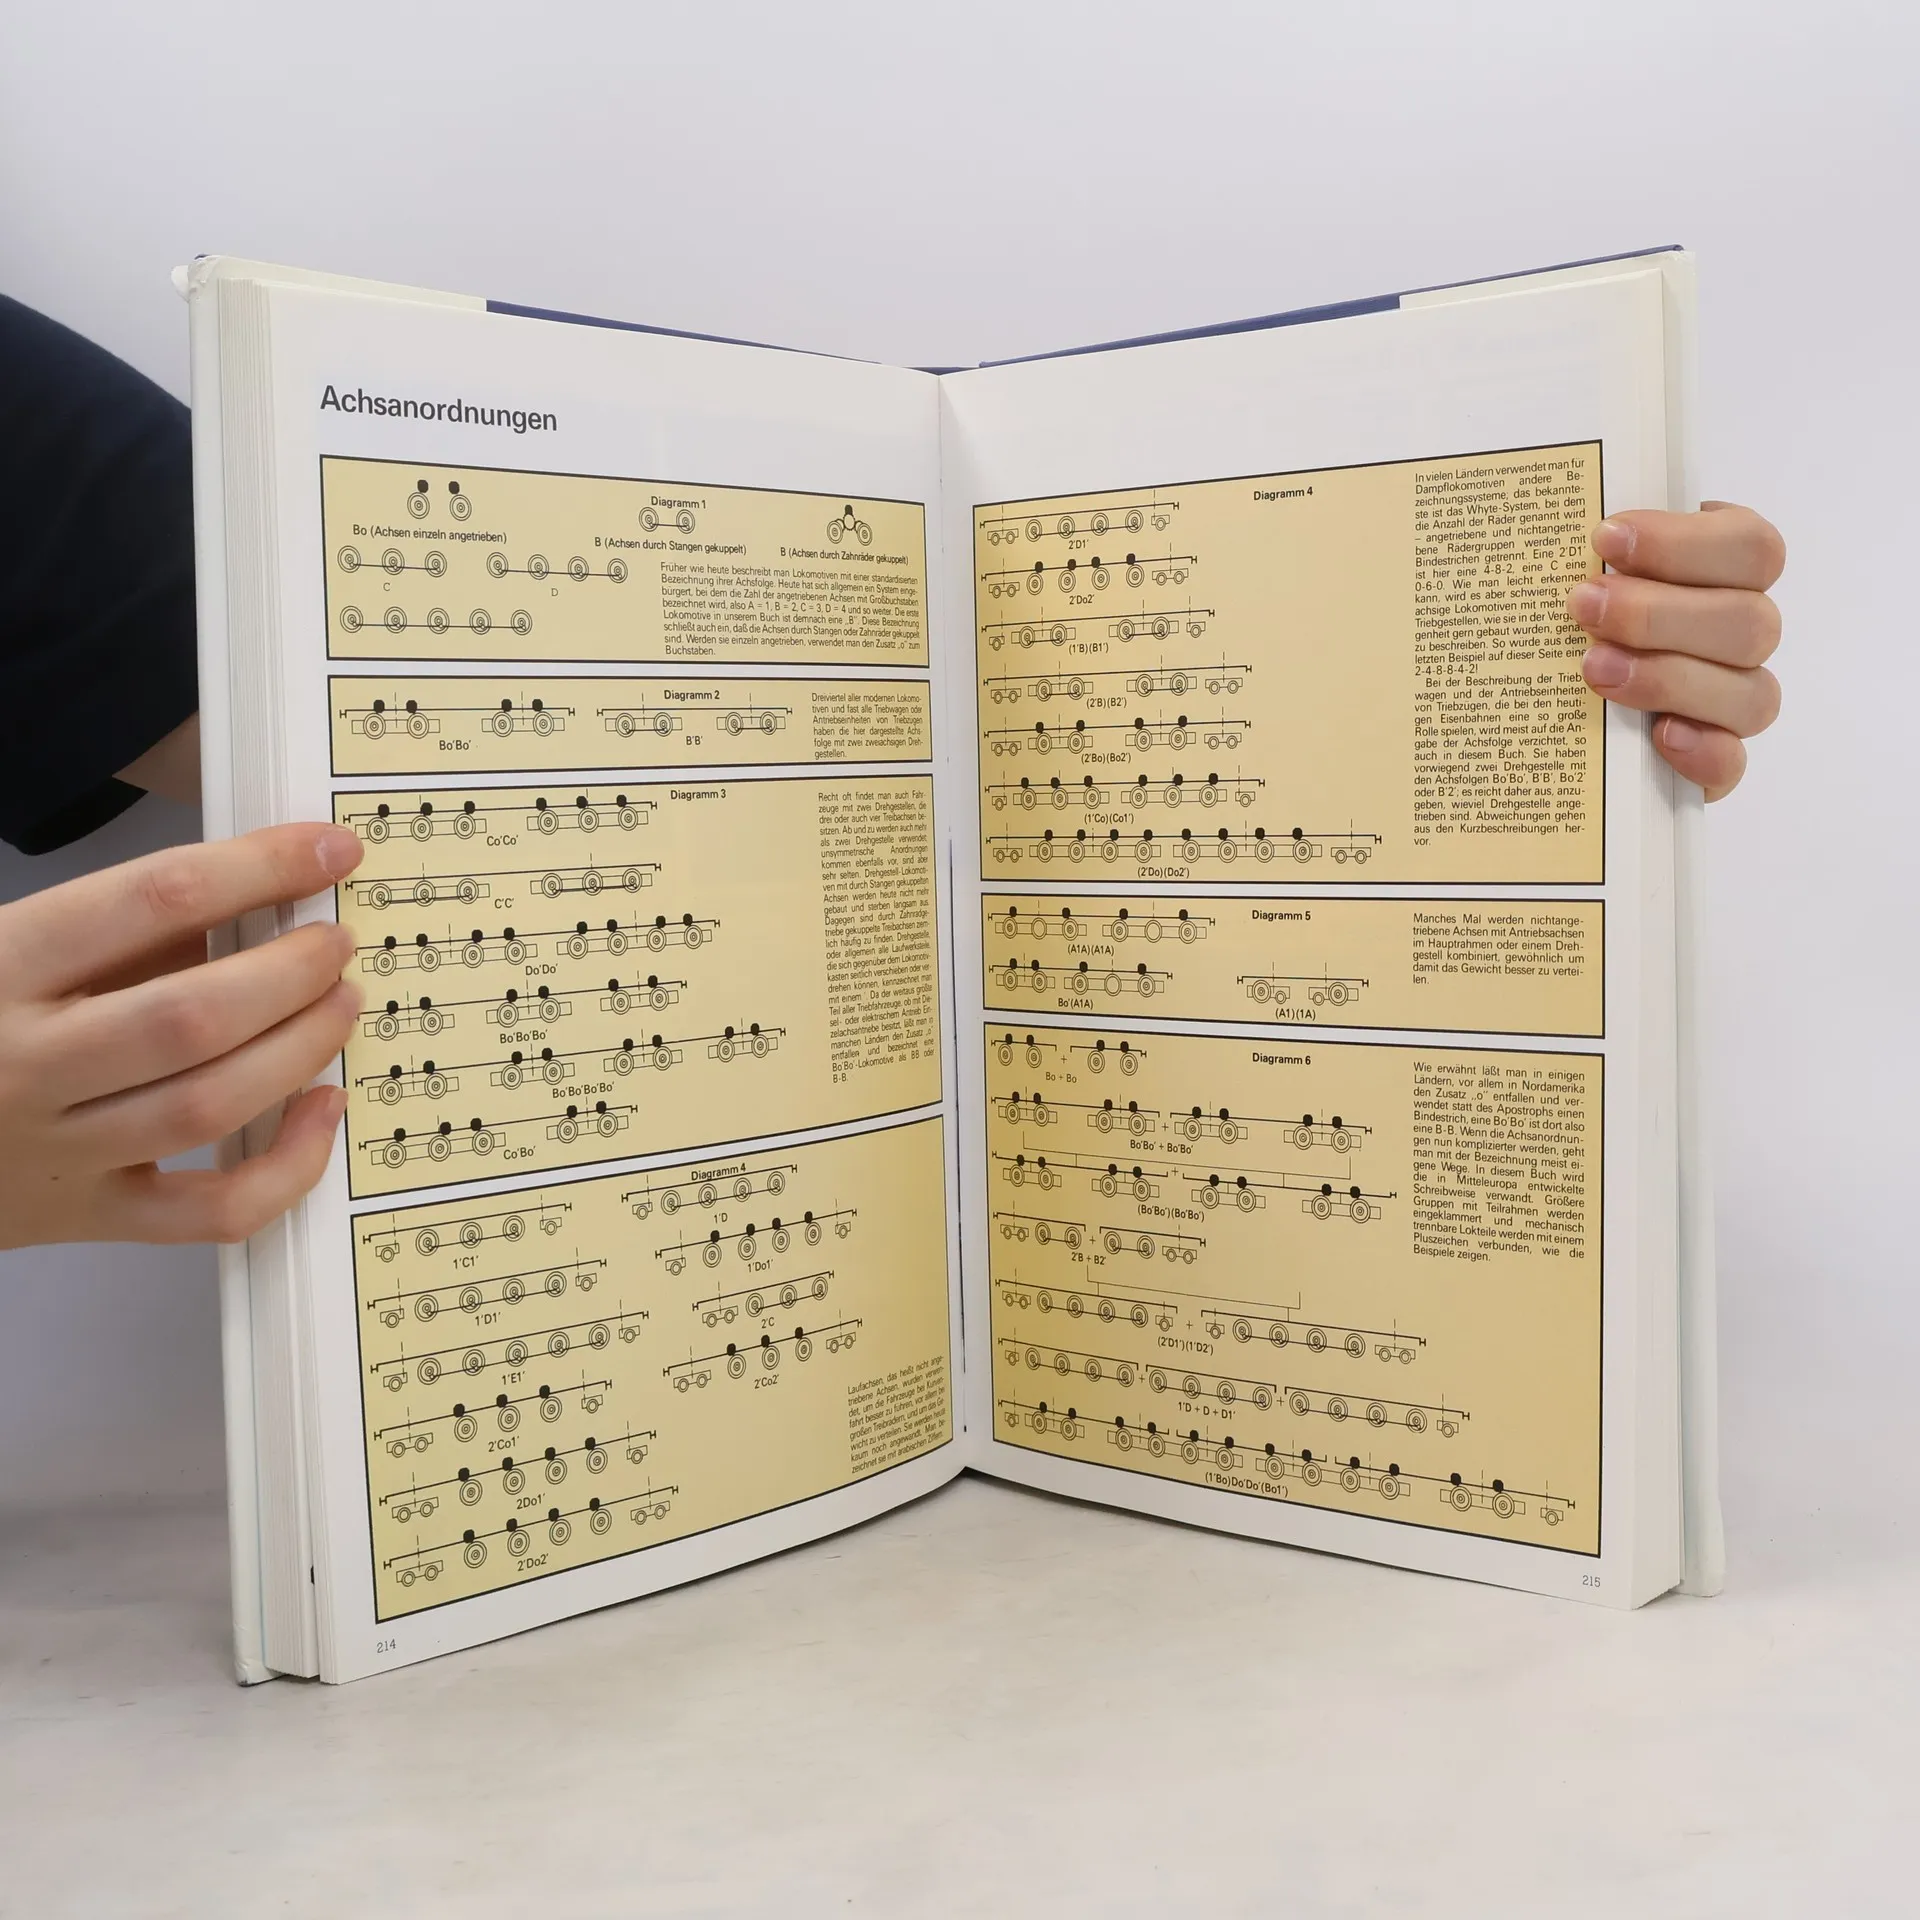 Achsanordnungen
Diagramm 1
Bo (Achsen einzeln angetrieben)
B (Achsen durch Stangen gekuppelt)
B (Achsen durch Zahnräder gekuppelt)
C
D
Früher wie heute beschreibt man Lokomotiven mit einer standardisierten
Bezeichnung ihrer Achsfolge. Heute hat sich allgemein ein System einge-
bürgert, bei dem die Zahl der angetriebenen Achsen mit Großbuchstaben
bezeichnet wird, also A = 1, B = 2, C = 3, D = 4 und so weiter. Die erste
Lokomotive in unserem Buch ist demnach eine „B". Diese Bezeichnung
schließt auch ein, daß die Achsen durch Stangen oder Zahnräder gekuppelt
sind. Werden sie einzeln angetrieben, verwendet man den Zusatz „o" zum
Buchstaben.
Diagramm 2
Bo'Bo'
B'B'
Dreiviertel aller modernen Lokomo-
tiven und fast alle Triebwagen oder
Antriebseinheiten von Triebzügen
haben die hier dargestellte Achs-
folge mit zwei zweiachsigen Dreh-
gestellen.
Diagramm 3
Co'Co'
C'C'
Do'Do'
Bo'Bo'Bo'
Bo'Bo'Bo'Bo'
Co'Bo'
Recht oft findet man auch Fahr-
zeuge mit zwei Drehgestellen, die
drei oder auch vier Treibachsen be-
sitzen. Ab und zu werden auch mehr
als zwei Drehgestelle verwendet,
unsymmetrische Anordnungen
kommen ebenfalls vor, sind aber
sehr selten. Drehgestell-Lokomoti-
ven mit durch Stangen gekuppelten
Achsen werden heute nicht mehr
gebaut und sterben langsam aus.
Dagegen sind durch Zahnradge-
triebe gekuppelte Treibachsen ziem-
lich häufig zu finden. Drehgestelle,
oder allgemein alle Laufwerksteile,
die sich gegenüber dem Lokomotiv-
kasten seitlich verschieben oder ver-
drehen können, kennzeichnet man
mit einem '. Da der weitaus größte
Teil aller Triebfahrzeuge, ob mit Die-
sel- oder elektrischem Antrieb Ein-
zelachsantriebe besitzt, läßt man in
manchen Ländern den Zusatz „o"
entfallen und bezeichnet eine
Bo'Bo'-Lokomotive als BB oder
B-B.
Diagramm 4
1'C1'
1'D
1'D1'
1'Do1'
1'E1'
2'C
2'Co1'
2'Co2'
2Do1'
2'Do2'
Laufachsen, das heißt nicht ange-
triebene Achsen, wurden verwen-
det, um die Fahrzeuge bei Kurven-
fahrt besser zu führen, vor allem bei
großen Treibrädern, und um das Ge-
wicht zu verteilen. Sie werden heute
kaum noch angewandt. Man be-
zeichnet sie mit arabischen Ziffern.
214
Diagramm 4
2'D1'
2'Do2'
(1'B)(B1')
(2'B)(B2')
(2'Bo)(Bo2')
(1'Co)(Co1')
(2'Do)(Do2')
In vielen Ländern verwendet man für
Dampflokomotiven andere Be-
zeichnungssysteme; das bekannte-
ste ist das Whyte-System, bei dem
die Anzahl der Räder genannt wird
– angetriebene und nichtangetrie-
bene Rädergruppen werden mit
Bindestrichen getrennt. Eine 2'D1'
ist hier eine 4-8-2, eine C eine
0-6-0. Wie man leicht erkennen
kann, wird es aber schwierig,
achsige Lokomotiven mit mehr
Triebgestellen, wie sie in der
genheit gern gebaut wurden, genau
zu beschreiben. So würde aus dem
letzten Beispiel auf dieser Seite eine
2-4-8-8-4-2!
Bei der Beschreibung der Trieb-
wagen und der Antriebseinheiten
von Triebzügen, die bei den heuti-
gen Eisenbahnen eine so große
Rolle spielen, wird meist auf die An-
gabe der Achsfolge verzichtet, so
auch in diesem Buch. Sie haben
vorwiegend zwei Drehgestelle mit
den Achsfolgen Bo'Bo', B'B', Bo'2'
oder B'2'; es reicht daher aus, anzu-
geben, wieviel Drehgestelle ange-
trieben sind. Abweichungen gehen
aus den Kurzbeschreibungen her-
vor.
Diagramm 5
(A1A)(A1A)
Bo'(A1A)
(A1)(1A)
Manches Mal werden nichtange-
triebene Achsen mit Antriebsachsen
im Hauptrahmen oder einem Dreh-
gestell kombiniert, gewöhnlich um
damit das Gewicht besser zu vertei-
len.
Diagramm 6
+
Bo + Bo
+
Bo'Bo' + Bo'Bo'
+
(Bo'Bo')(Bo'Bo')
+
2'B + B2'
+
(2'D1')(1'D2')
+
+
1'D + D + D1'
(1'Bo)Do'Do'(Bo1')
Wie erwähnt läßt man in einigen
Ländern, vor allem in Nordamerika
den Zusatz „o" entfallen und ver-
wendet statt des Apostrophs einen
Bindestrich, eine Bo'Bo' ist dort also
eine B-B. Wenn die Achsanordnun-
gen nun komplizierter werden, geht
man mit der Bezeichnung meist ei-
gene Wege. In diesem Buch wird
die in Mitteleuropa entwickelte
Schreibweise verwandt. Größere
Gruppen mit Teilrahmen werden
eingeklammert und mechanisch
trennbare Lokteile werden mit einem
Pluszeichen verbunden, wie die
Beispiele zeigen.
215